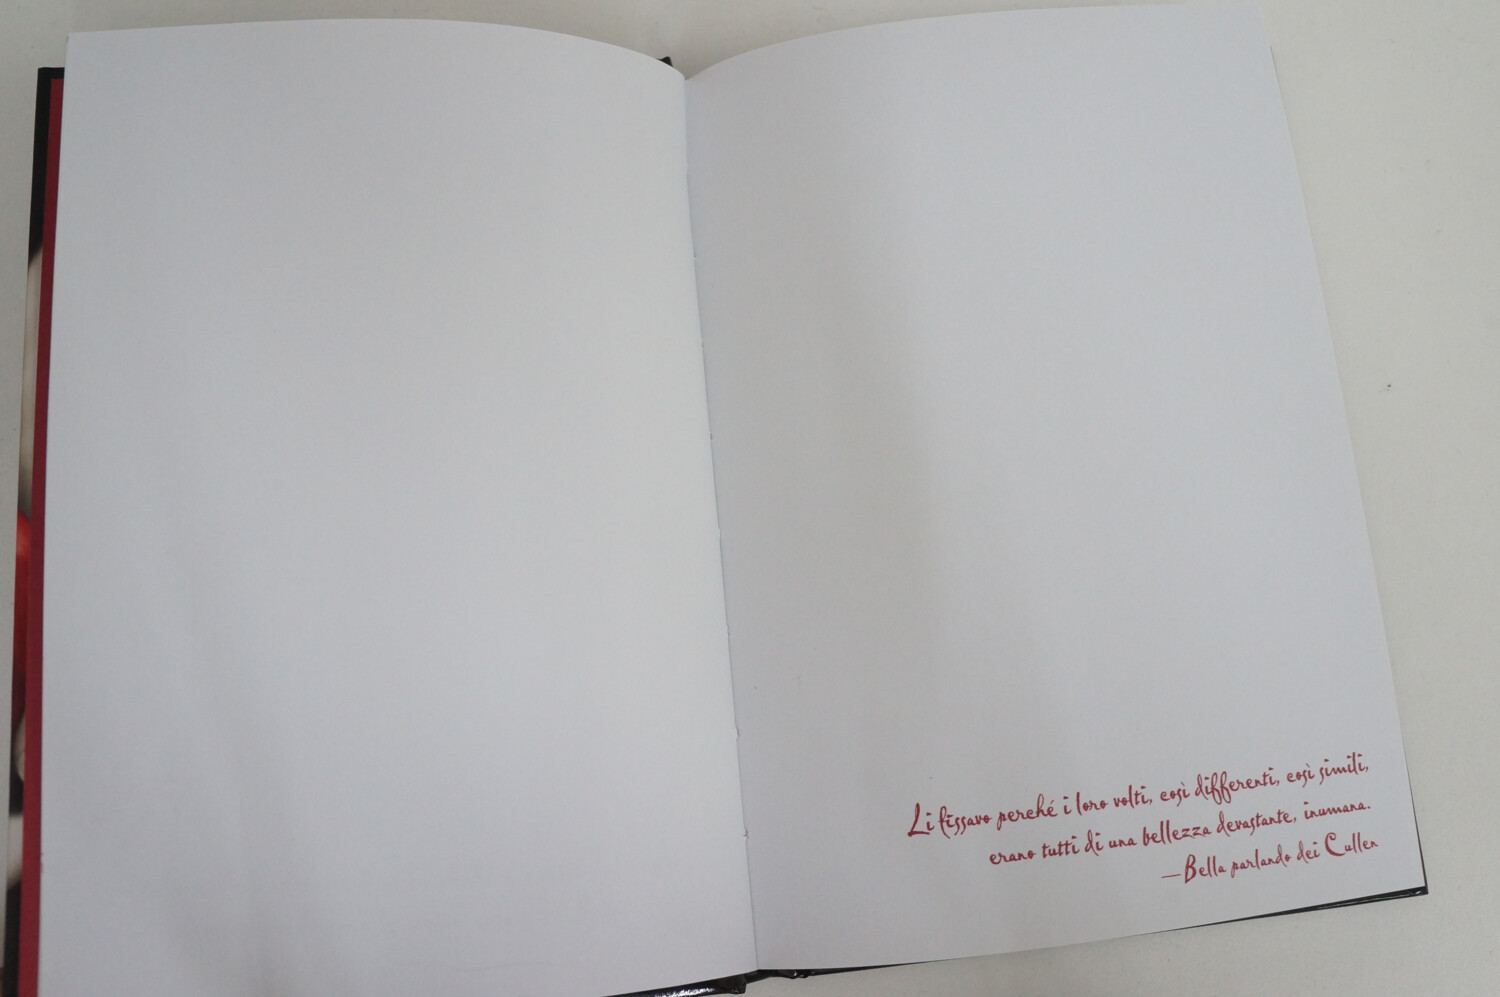 Li fissavo perché i loro volti, così differenti, così simili,
erano tutti di una bellezza devastante, inumana.
—Bella parlando dei Cullen